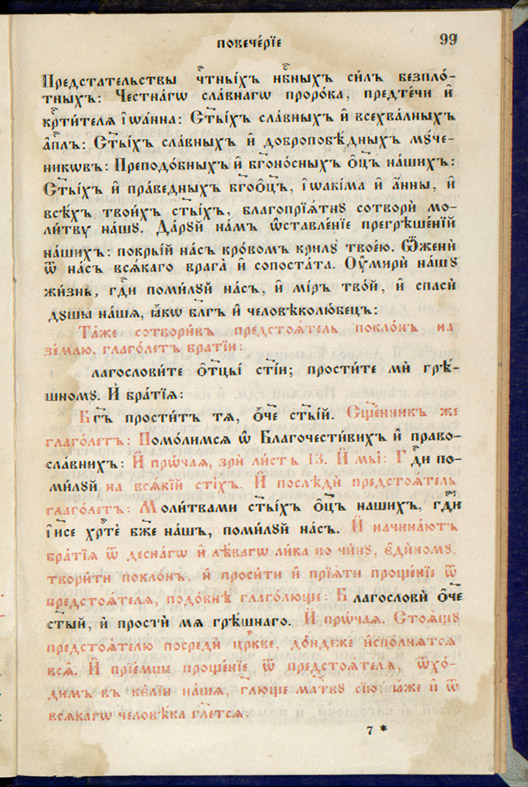 повече́рїе 99
Предстательствы чⷭ҇тны́хъ нбⷭ҇ныхъ си́лъ безпло́-
тныхъ: Честна́гѡ сла́внагѡ проро́ка, предте́чи и҆
крⷭ҇ти́телѧ і҆ѡа́нна: Ст҃ы́хъ сла́вныхъ и҆ всехва́лныхъ
а҆пⷭ҇лъ: Ст҃ы́хъ сла́вныхъ и҆ добропобѣ́дныхъ мꙋ́че-
никѡвъ: Преподо́бныхъ и҆ бг҃оно́сныхъ ѻ҆тⷰ҇ъ на́шихъ:
Ст҃ы́хъ и҆ пра́ведныхъ бг҃оѻтⷰ҇ъ, і҆ѡакі́ма и҆ а҆́нны, и҆
всѣ́хъ твои́хъ ст҃ы́хъ, благопрїѧ́тнꙋ сотворѝ мо-
ли́твꙋ на́шꙋ. Да́рꙋй на́мъ ѡ҆ставле́нїе прегрѣше́нїй
на́шихъ: покры́й на́съ кро́вомъ крилꙋ̀ твоє́ю. Ѿженѝ
ѿ на́съ всѧ́каго врага̀ и҆ сопоста́та. Оу҆мирѝ на́шꙋ
жи́знь, гдⷭ҇и поми́лꙋй на́съ, и҆ мі́ръ тво́й, и҆ спасѝ
дꙋ́шы на́шѧ, ꙗ҆́кѡ бл҃гъ и҆ человѣколю́бецъ:
Та́же сотвори́въ предстоѧ́тель покло́нъ на
зе́млю, глаго́летъ бра́тїи:
лагослови́те ѻ҆тⷰ҇ы́ ст҃і́и; прости́те мѝ грѣ́-
шномꙋ. И҆ бра́тїѧ:
Бг҃ъ прости́тъ тѧ̀, ѻ҆́ч҃е ст҃ы́й. Сщ҃е́нникъ же
глаго́летъ: Помо́лимсѧ ѡ҆ Благочести́вихъ и҆ право-
сла́вних: И҆ прѡ́чаѧ, зрѝ ли́стъ 13. И҆ мы̀: Гдⷭ҇и по-
ми́лꙋй на всѧ́кїй сті́хъ. И҆ послѣдѝ предстоѧ́тель
глаго́летъ: Моли́твами ст҃ы́хъ ѻ҆тⷰ҇ъ на́шихъ, гдⷭ҇и
і҆и҃се хрⷭ҇те́ бж҃е на́шъ, поми́лꙋй на́съ. И҆ начина́ютъ
бра́тїѧ ѿ десна́гѡ и҆ лѣ́вагѡ ли́ка по чи́нꙋ, є҆ди́номꙋ,
твори́ти покло́нъ, и҆ проси́ти и҆ прїѧ́ти проще́нїе ѿ
предстоѧ́телѧ, подо́бнѣ глаго́люще: Благословѝ ѻ҆́ч҃е
ст҃ый, и҆ простѝ мѧ̀ грѣ́шнаго. И҆ прѡ́чаѧ. Стоѧ́щꙋ
предстоѧ́телю посредѝ црⷭ҇кве, до́ндеже и҆спо́лнѧтсѧ
всѧ̑. И҆ прїе́мшы проще́нїе, ѿ предстоѧ́телѧ, ѿхо́-
димъ въ кє́лїи на́шѧ, гл҃юще мл҃твꙋ сїю̀ ꙗ҆́же и҆ ѿ
всѧ́кагѡ человѣ́ка гл҃етсѧ.
7 *